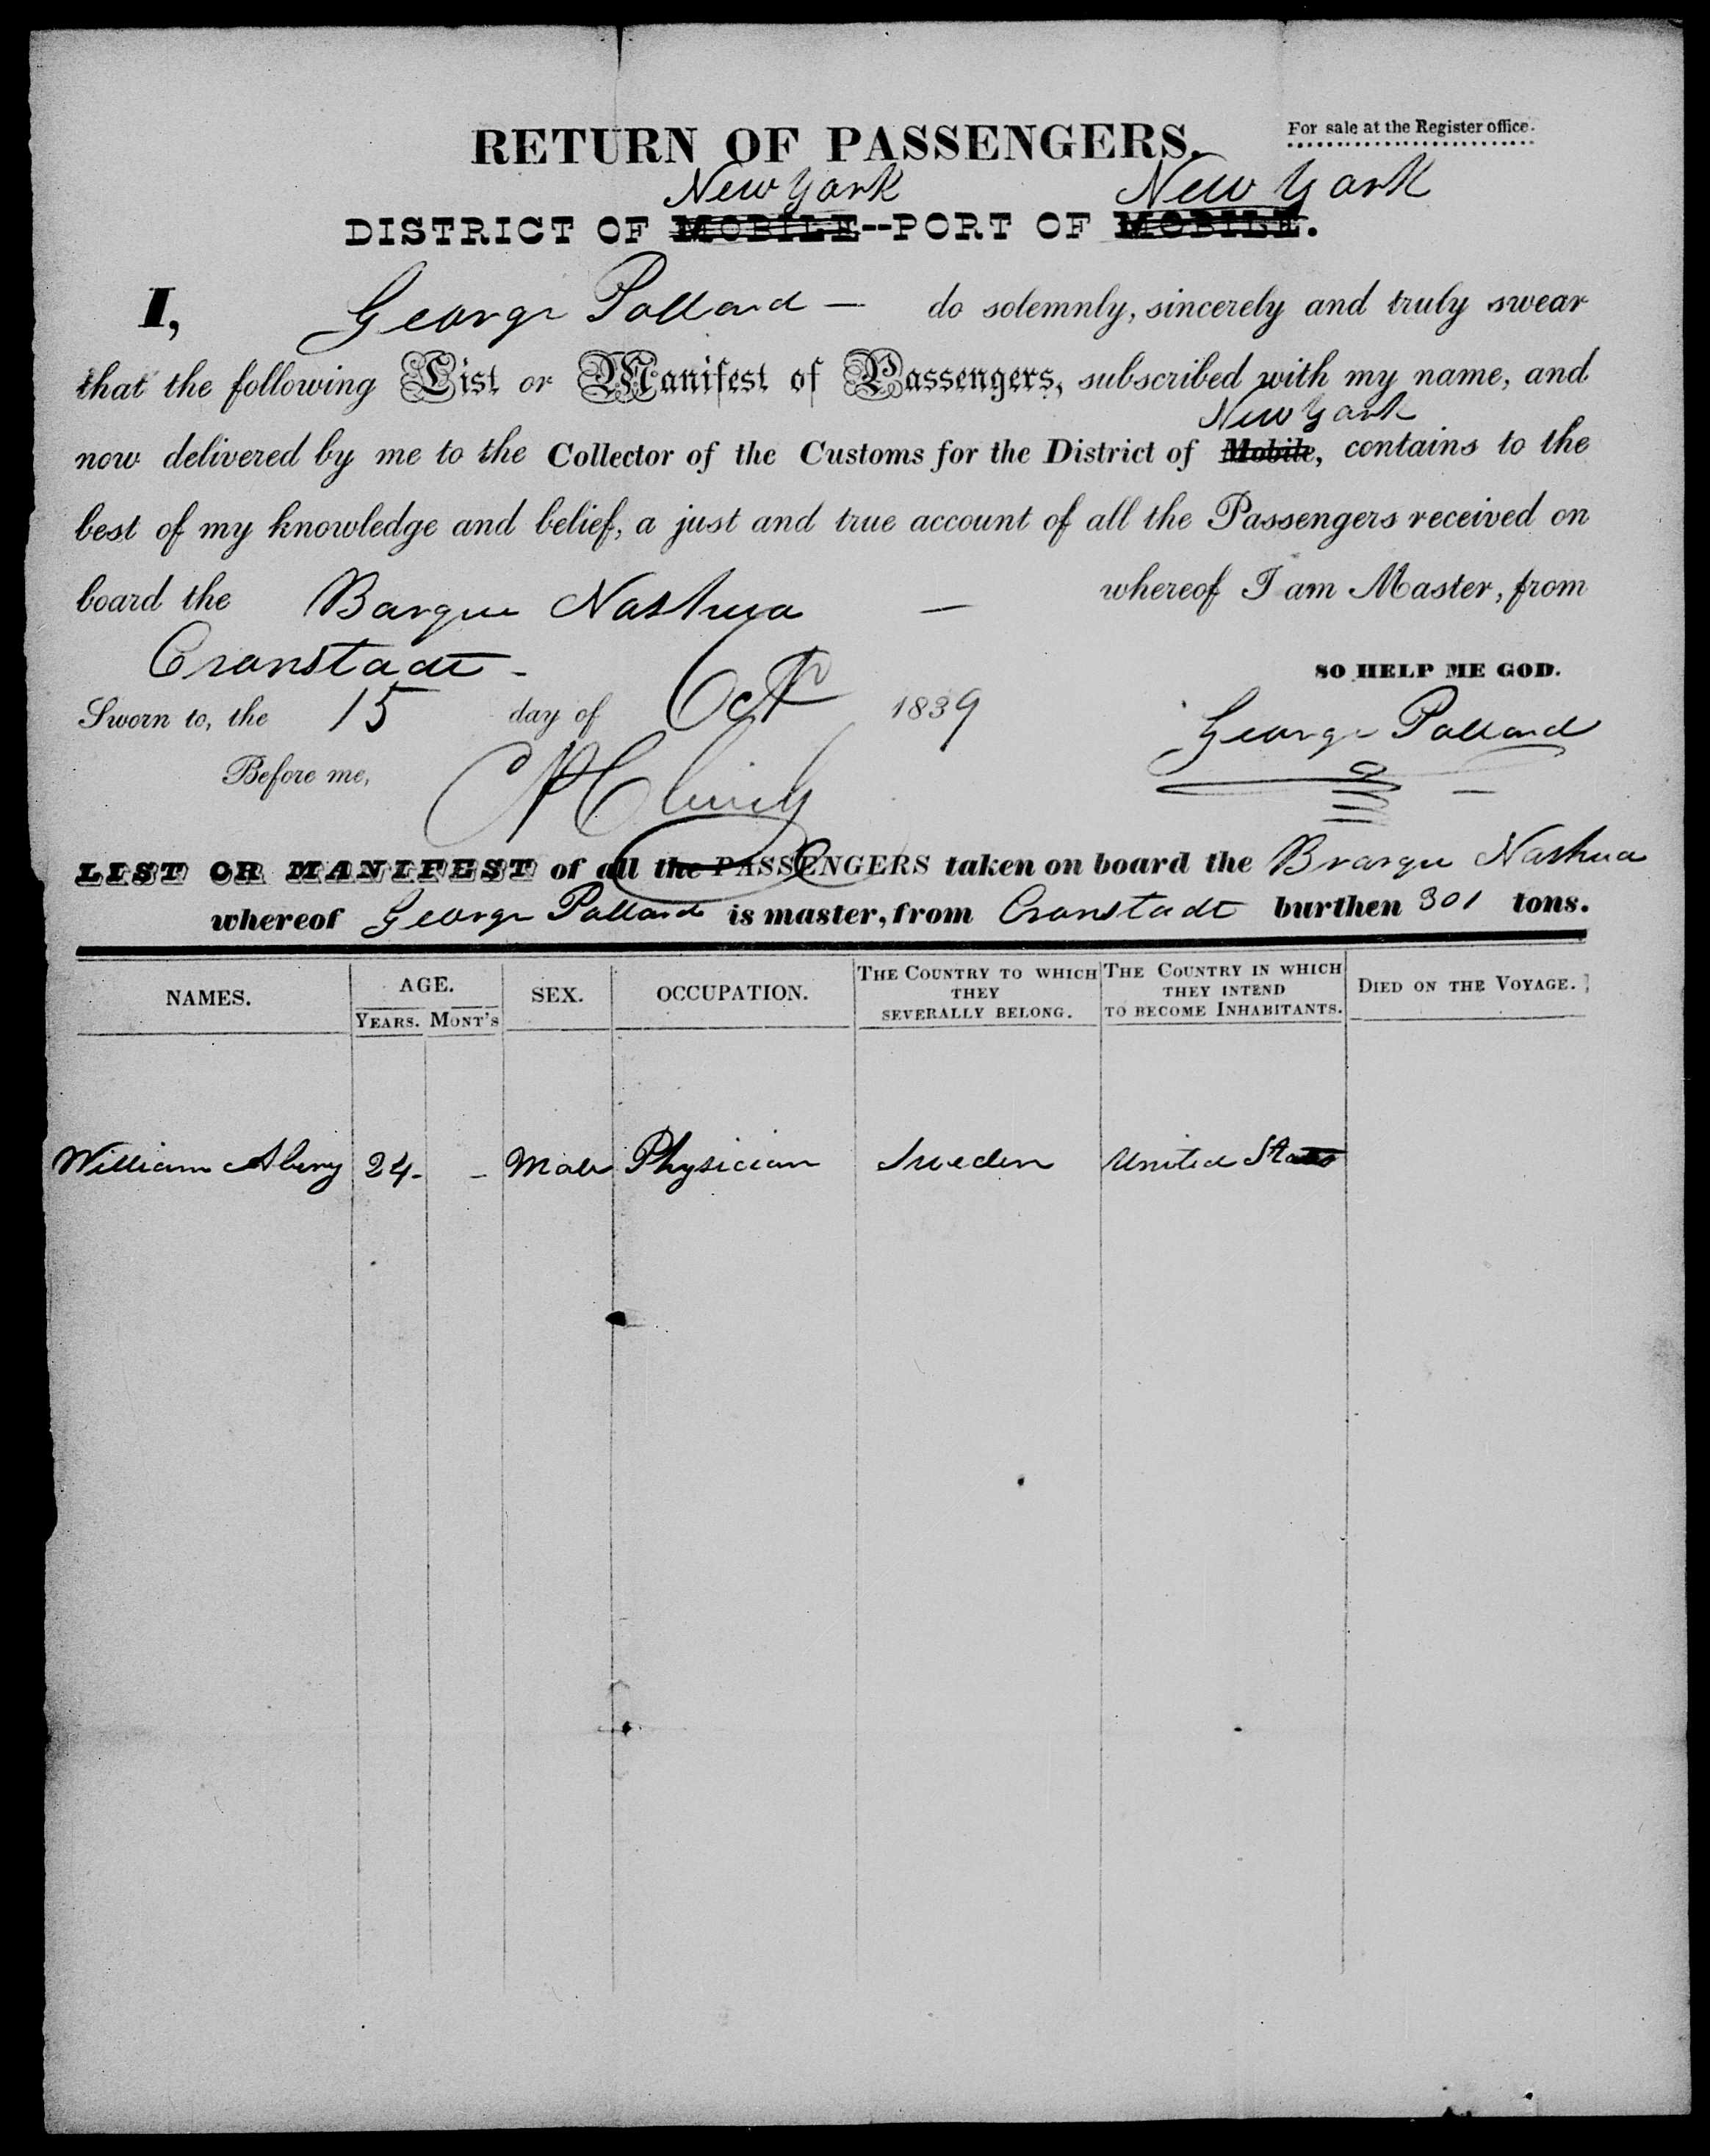 RETURN OF PASSENGERS.
For sale at the Register office.
New York New York
DISTRICT OF MOBILE--PORT OF MOBILE.
I, George Pollard — do solemnly, sincerely and truly swear
that the following List or Manifest of Passengers, subscribed with my name, and
New York
now delivered by me to the Collector of the Customs for the District of Mobile, contains to the
best of my knowledge and belief, a just and true account of all the Passengers received on
board the Barque Nashua — whereof I am Master, from
Cronstadt -
SO HELP ME GOD.
Sworn to, the 15 day of Oct 1839
George Pollard
Before me,
LIST OR MANIFEST of all the PASSENGERS taken on board the Brarque Nashua
whereof George Pollard is master, from Cronstadt burthen 301 tons.
NAMES. AGE. SEX. OCCUPATION. THE COUNTRY TO WHICH THEY SEVERALLY BELONG. THE COUNTRY IN WHICH THEY INTEND TO BECOME INHABITANTS. DIED ON THE VOYAGE.
YEARS. MONT'S
William 24 - - Male Physician Sweden United States